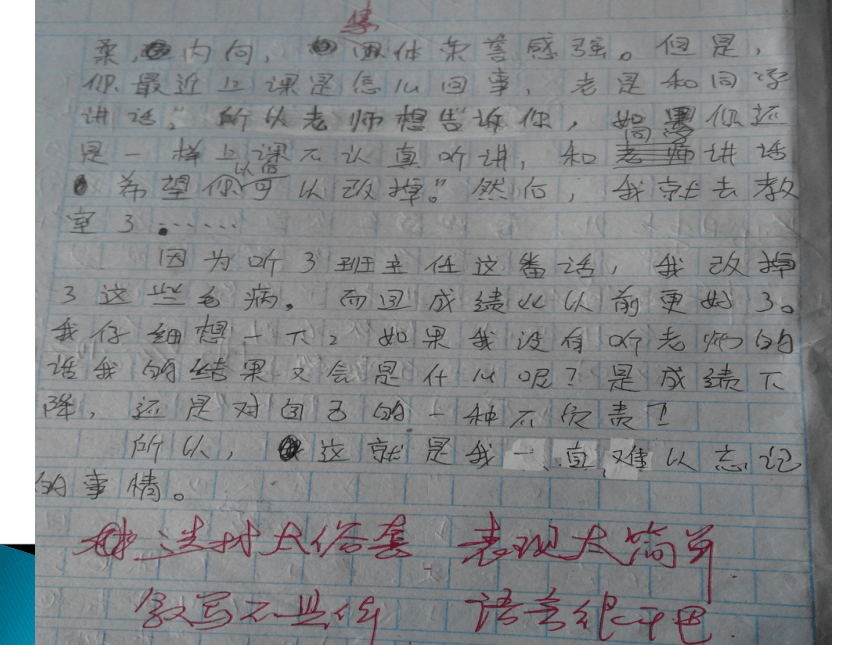 集
柔,内向,团体荣誉感强。但是,
你最近上课是怎么回事,老是和同学
讲话。所以老师想告诉你,如果你还
同学
是一样上课不认真听讲,和老师讲话
以后
希望你可以改掉。”然后,我就去教
室了……
因为听了班主任这番话,我改掉
了这些毛病。而且成绩比以前更好了。
我仔细想一下,如果我没有听老师的
话我的结果又会是什么呢?是成绩下
降,还是对自己的一种不负责!
所以,这就是我一直难以忘记
的事情。
选材太俗套 表现太简单
叙写不具体 语言很干巴